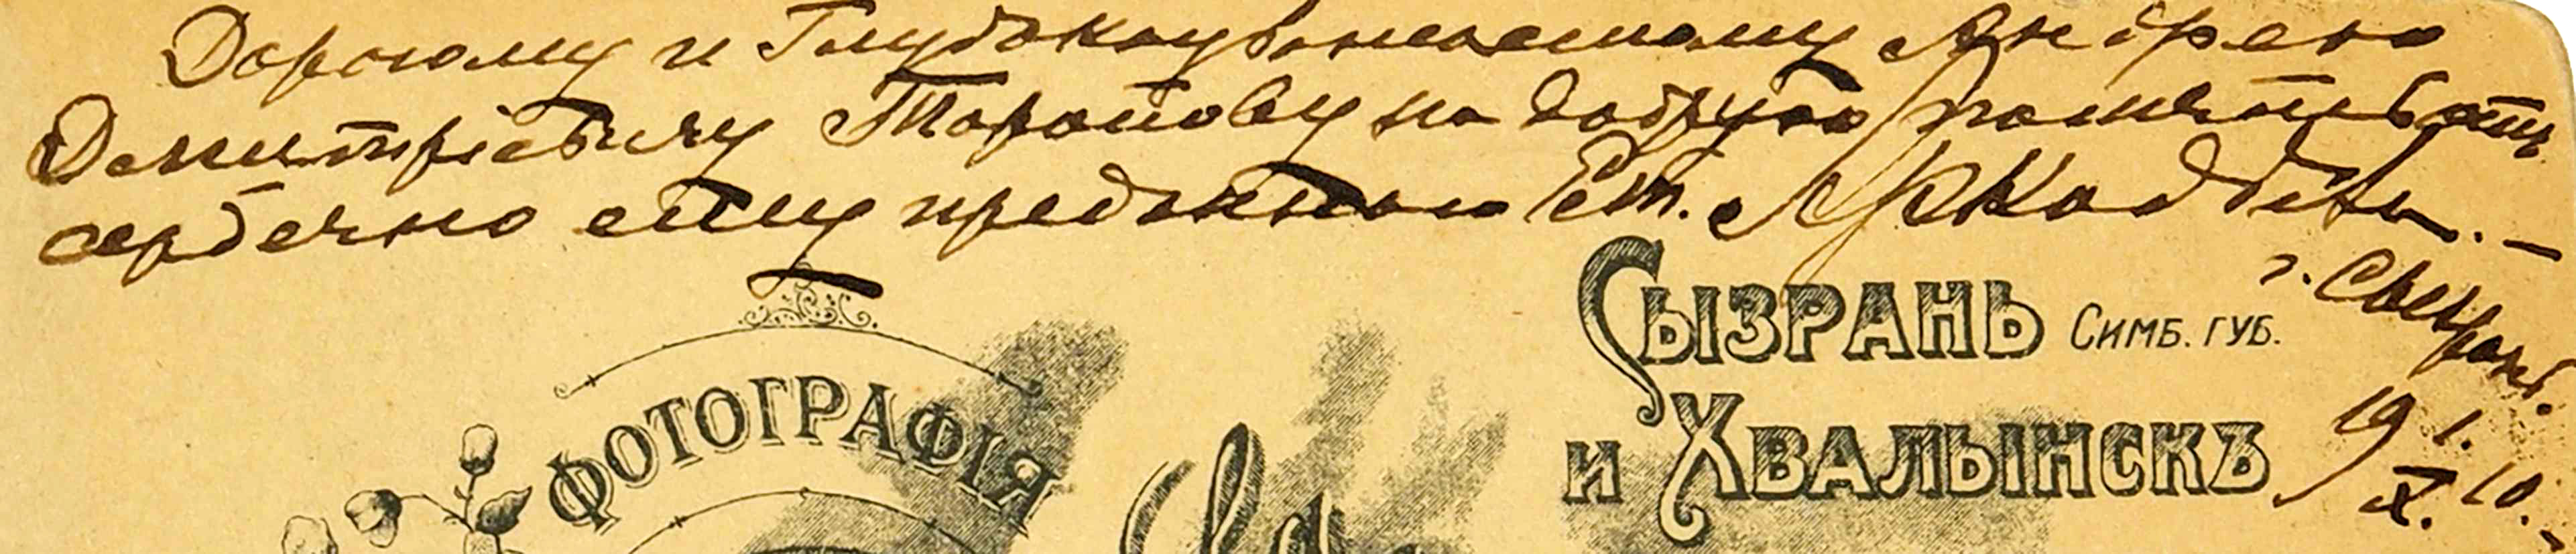 Дорогому и Глубокоуважаемому Андрею
Дмитріевичу Торопову на добрую память отъ
сердечно ему преданнаго Ст.
г. Сызрань.
19
X. 10.
ФОТОГРАФІЯ
СЫЗРАНЬ СИМБ. ГУБ.
И ХВАЛЫНСКЪ